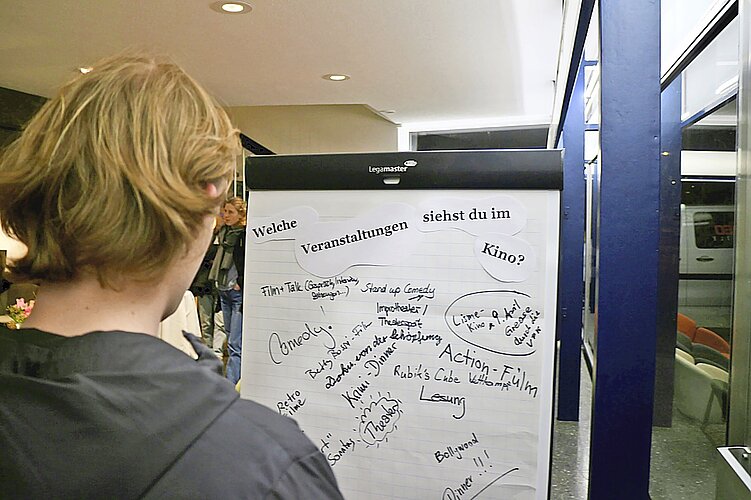 Legamaster
Welche
Veranstaltungen
siehst du im
Kino?
Film + Talk (Gespräch, Interview,
Stand up Comedy
Improtheater /
Theatersport
Comedy!
Lisme-
Kino
9. April
Grease
durch die
Betty Bossi-Film
von der Schöpfung
Krimi-Dinner
Action-Film
Rubik's Cube Wettkampf
Lesung
Retro
Filme
Theater!
Sonntag
Bollywood
Dinner!!!